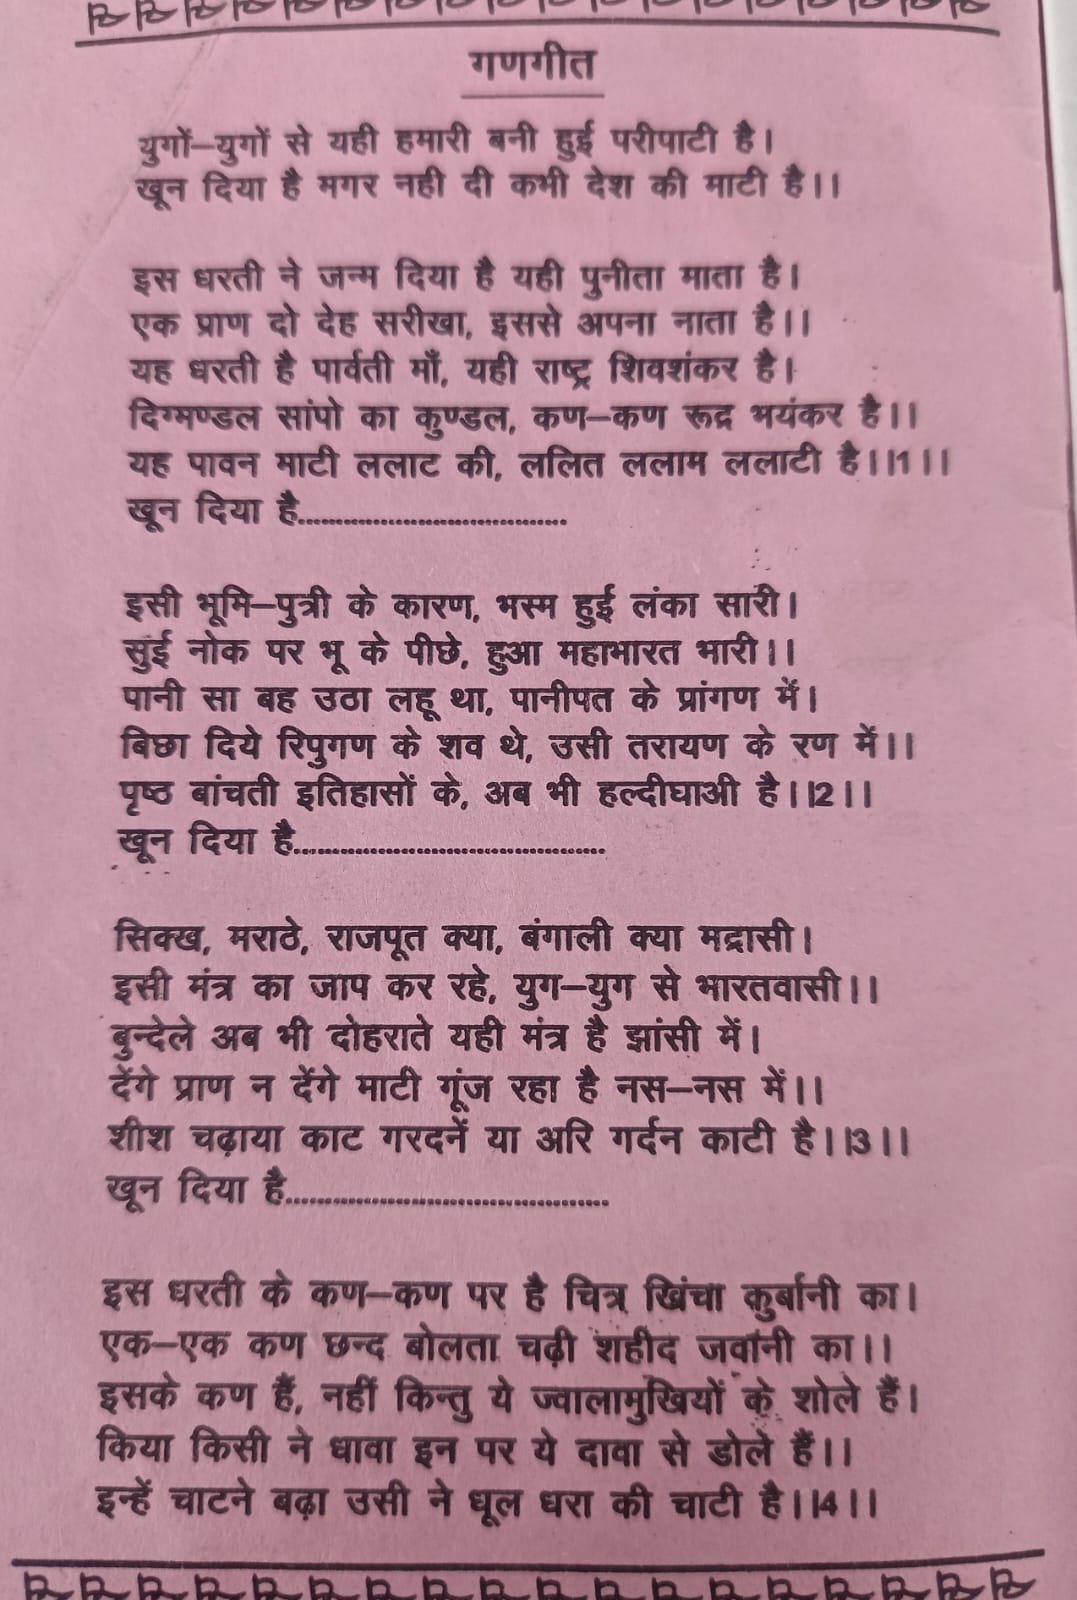 गणगीत
युगों–युगों से यही हमारी बनी हुई परीपाटी है।
खून दिया है मगर नही दी कभी देश की माटी है।।
इस धरती ने जन्म दिया है यही पुनीता माता है।
एक प्राण दो देह सरीखा, इससे अपना नाता है।।
यह धरती है पार्वती माँ, यही राष्ट्र शिवशंकर है।
दिग्मण्डल सांपो का कुण्डल, कण–कण रूद्र भयंकर है।।
यह पावन माटी ललाट की, ललित ललाम ललाटी है।।1।।
खून दिया है...................................
इसी भूमि–पुत्री के कारण, भस्म हुई लंका सारी।
सुई नोक पर भू के पीछे, हुआ महाभारत भारी।।
पानी सा बह उठा लहू था, पानीपत के प्रांगण में।
बिछा दिये रिपुगण के शव थे, उसी तरायण के रण में।।
पृष्ठ बांचती इतिहासों के, अब भी हल्दीघाओ है।।2।।
खून दिया है........................................
सिक्ख, मराठे, राजपूत क्या, बंगाली क्या मद्रासी।
इसी मंत्र का जाप कर रहे, युग–युग से भारतवासी।।
बुन्देले अब भी दोहराते यही मंत्र है झांसी में।
देंगे प्राण न देंगे माटी गूंज रहा है नस–नस में।।
शीश चढ़ाया काट गरदनें या अरि गर्दन काटी है।।3।।
खून दिया है.........................................
इस धरती के कण–कण पर है चित्र खिंचा कुर्बानी का।
एक–एक कण छन्द बोलता चढ़ी शहीद जवांनी का।।
इसके कण हैं, नहीं किन्तु ये ज्वालामुखियों के शोले हैं।
किया किसी ने धावा इन पर ये दावा से डोले हैं।।
इन्हें चाटने बढ़ा उसी ने धूल धरा की चाटी है।।4।।